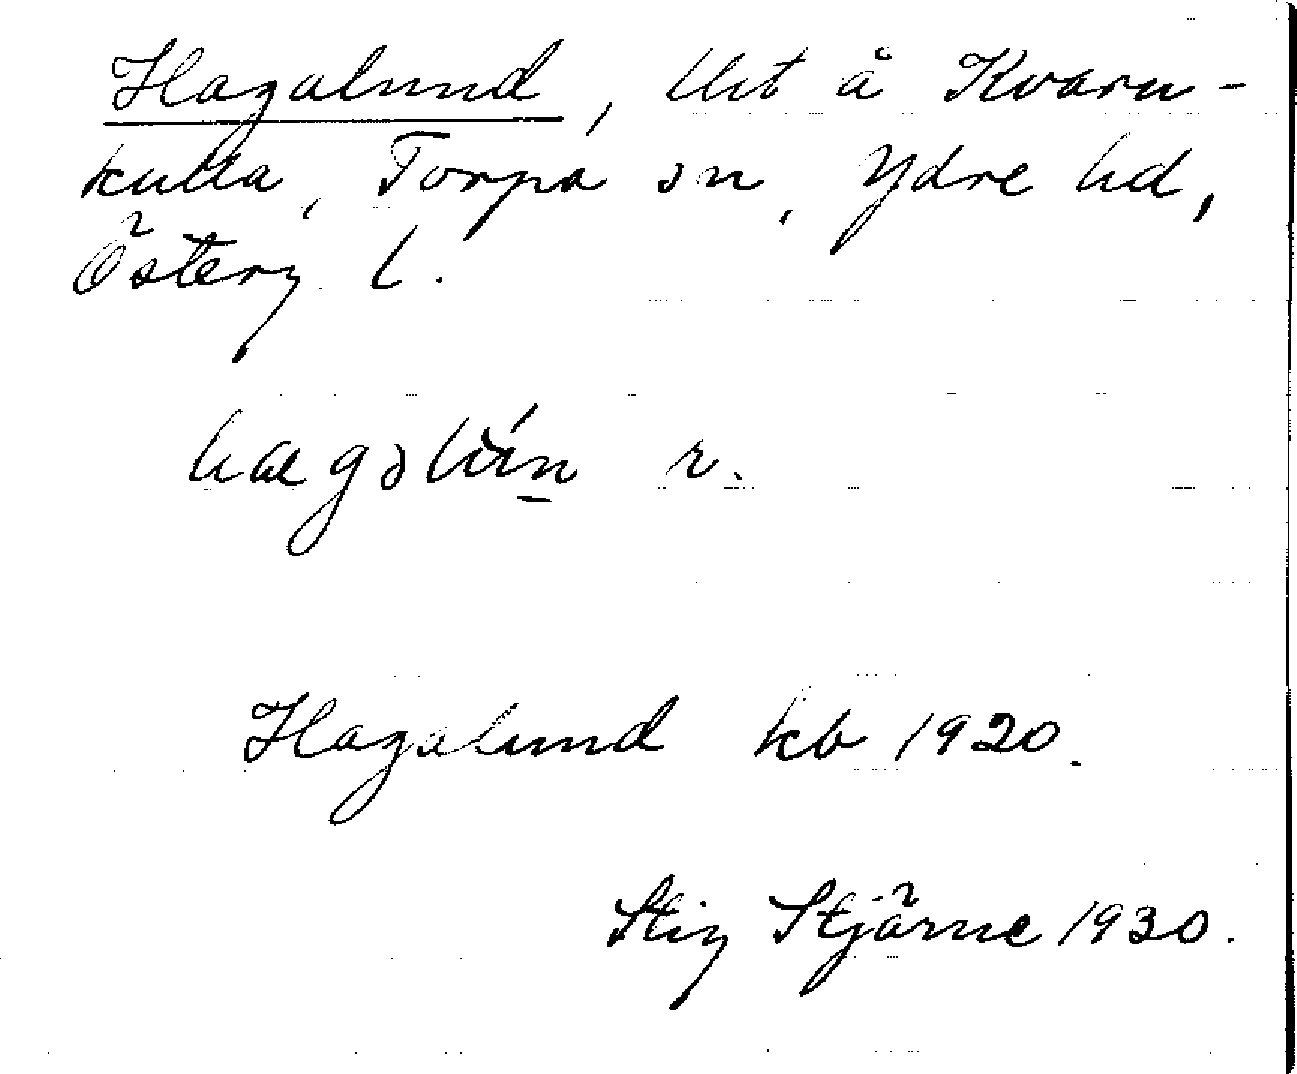 Hagalund, lht å Kvarn-
kulla, Torpa sn, Ydre hd,
Österg l.
r.
Hagalund kb 1920.
Stig Stjärne 1930.